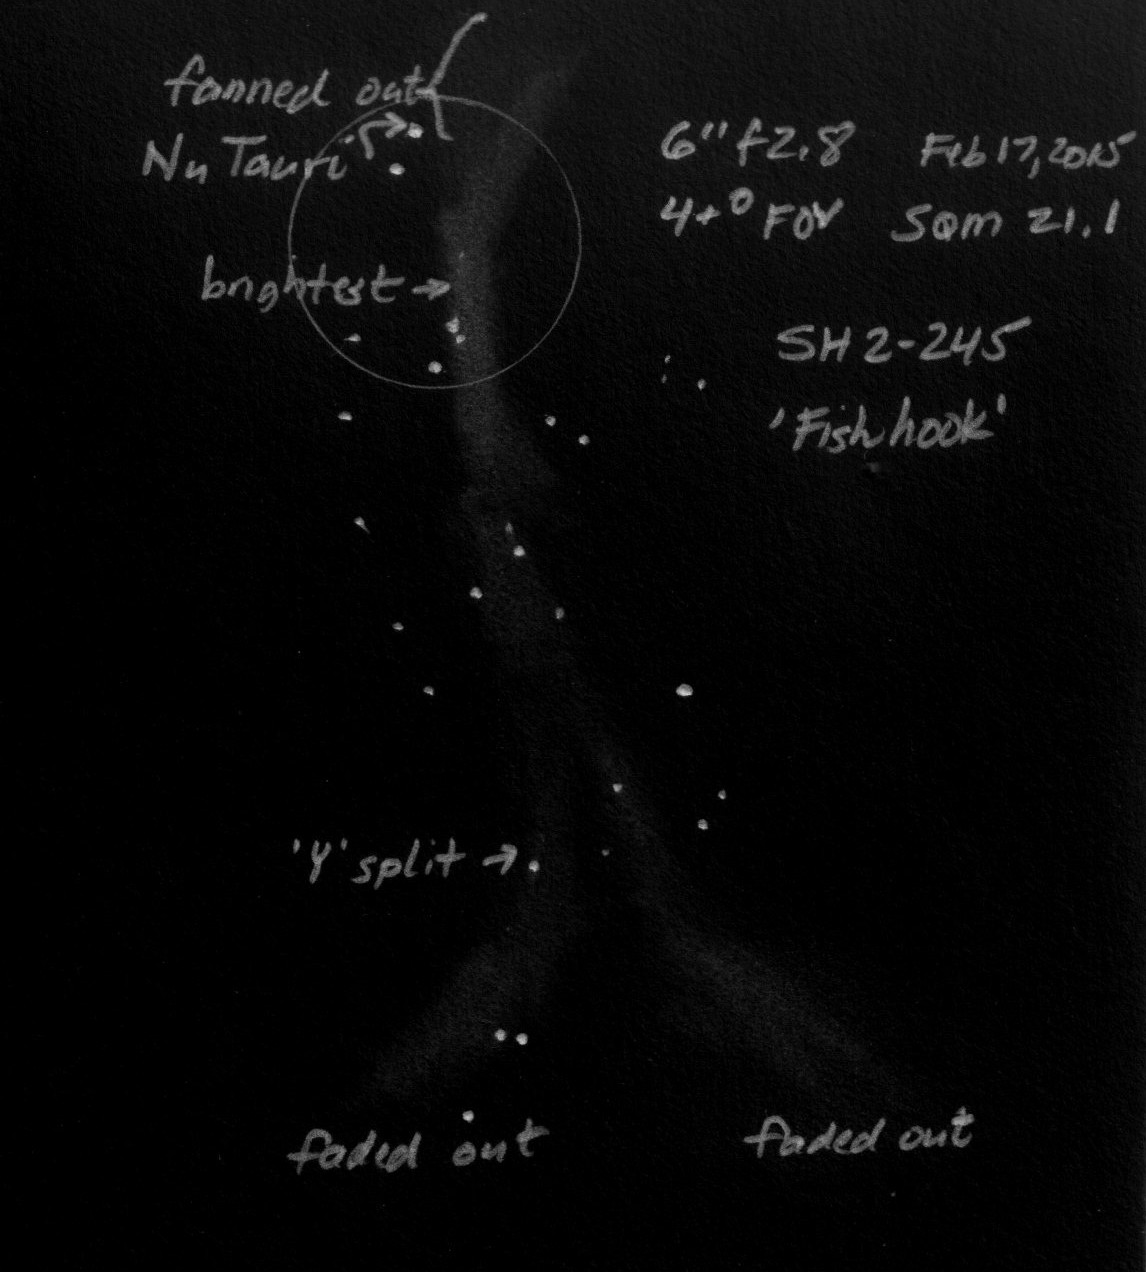 fanned out
Nu Tauri
6" f2.8 Feb 17, 2015
4+° FOV SQM 21.1
brightest →
SH 2-245
'Fish hook'
'Y' split →
faded out
faded out